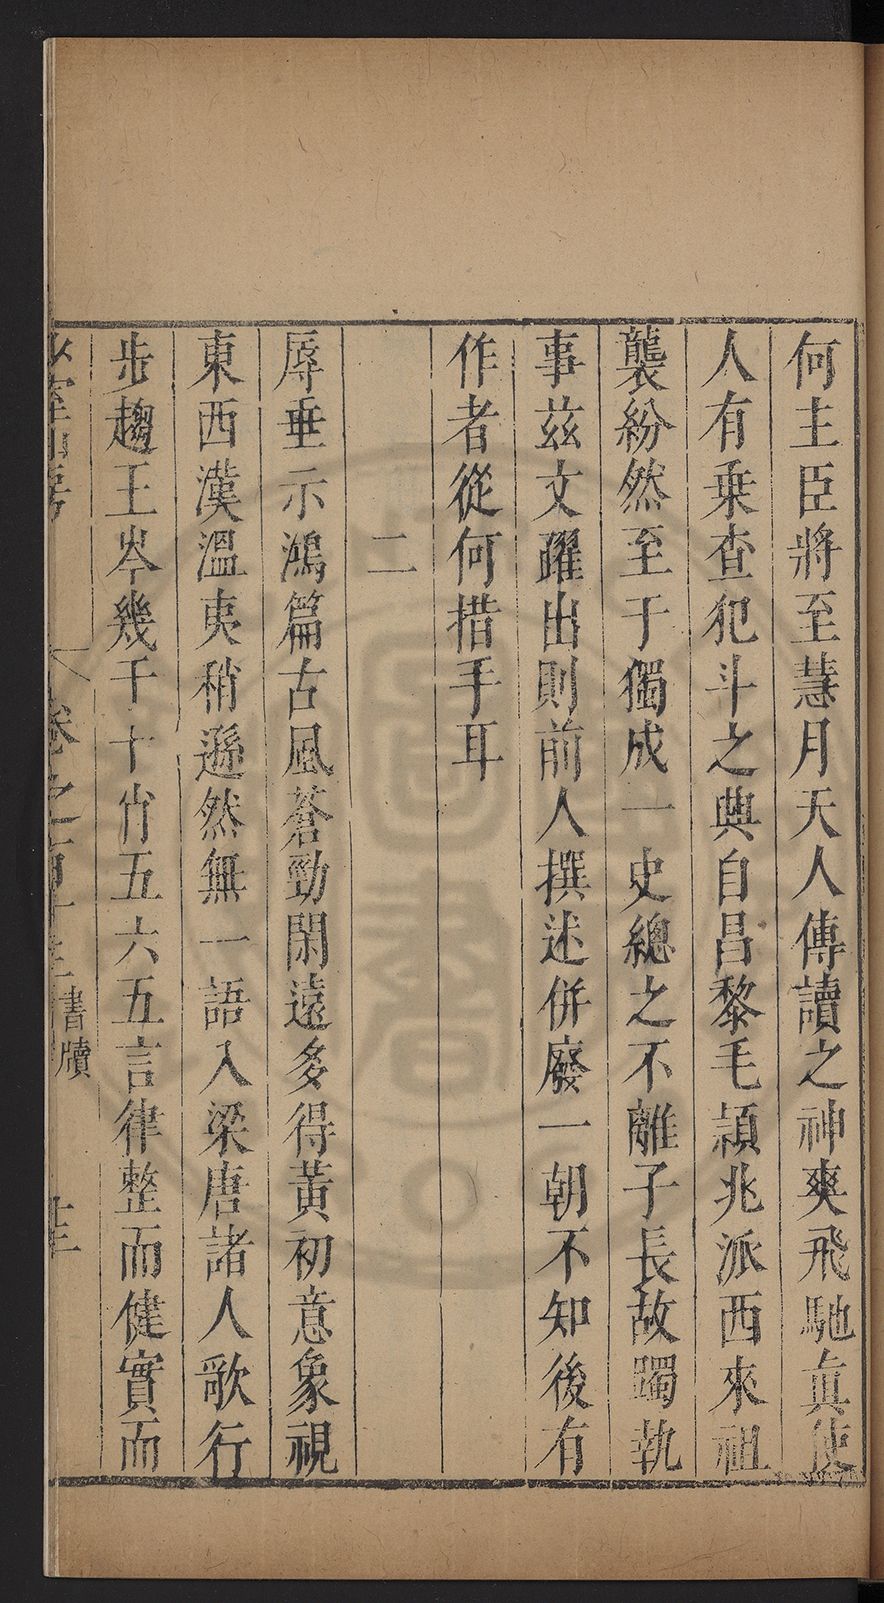 何主臣將至慧月天人傳讀之神爽飛馳真使
人有乗查犯斗之典自昌黎毛頴兆派西來祖
襲紛然至于獨成一史總之不離子長故躅執
事茲文躍出則前人撰述併廢一朝不知後有
作者從何措手耳
二
辱垂示鴻篇古風蒼勁閑遠多得黃初意象視
東西漢溫夷稍遜然無一語入梁唐諸人歌行
步趨王岑幾千十肖五六五言律整而健實而
室山房
卷之百十
書牘